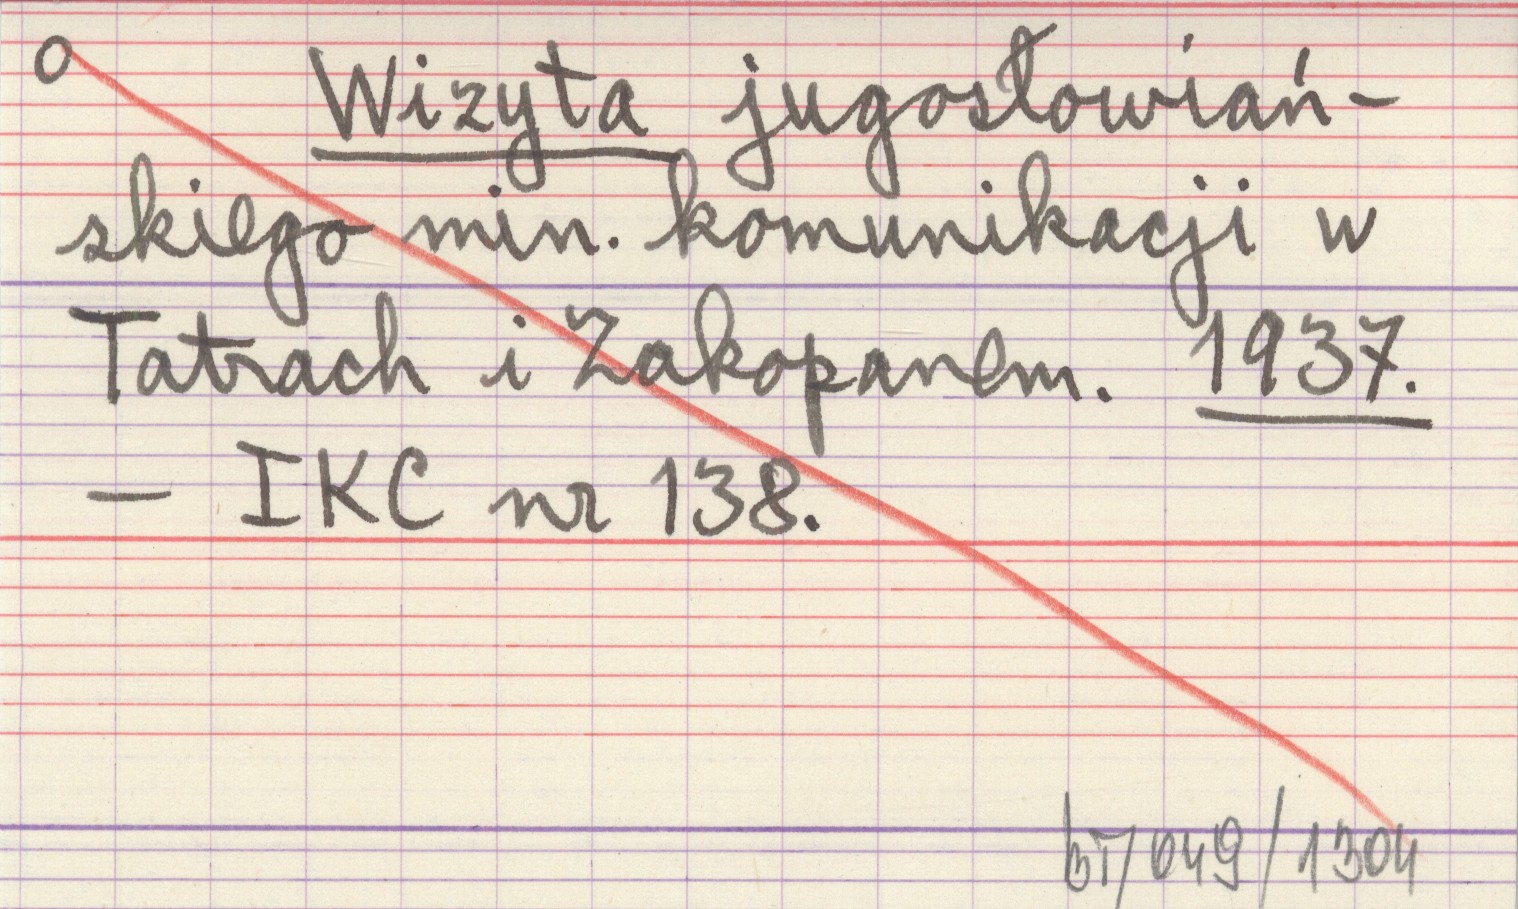 O Wizyta jugosłowiań-
skiego min. komunikacji w
Tatrach i Zakopanem. 1937.
— IKC nr 138.
bT/049/1304